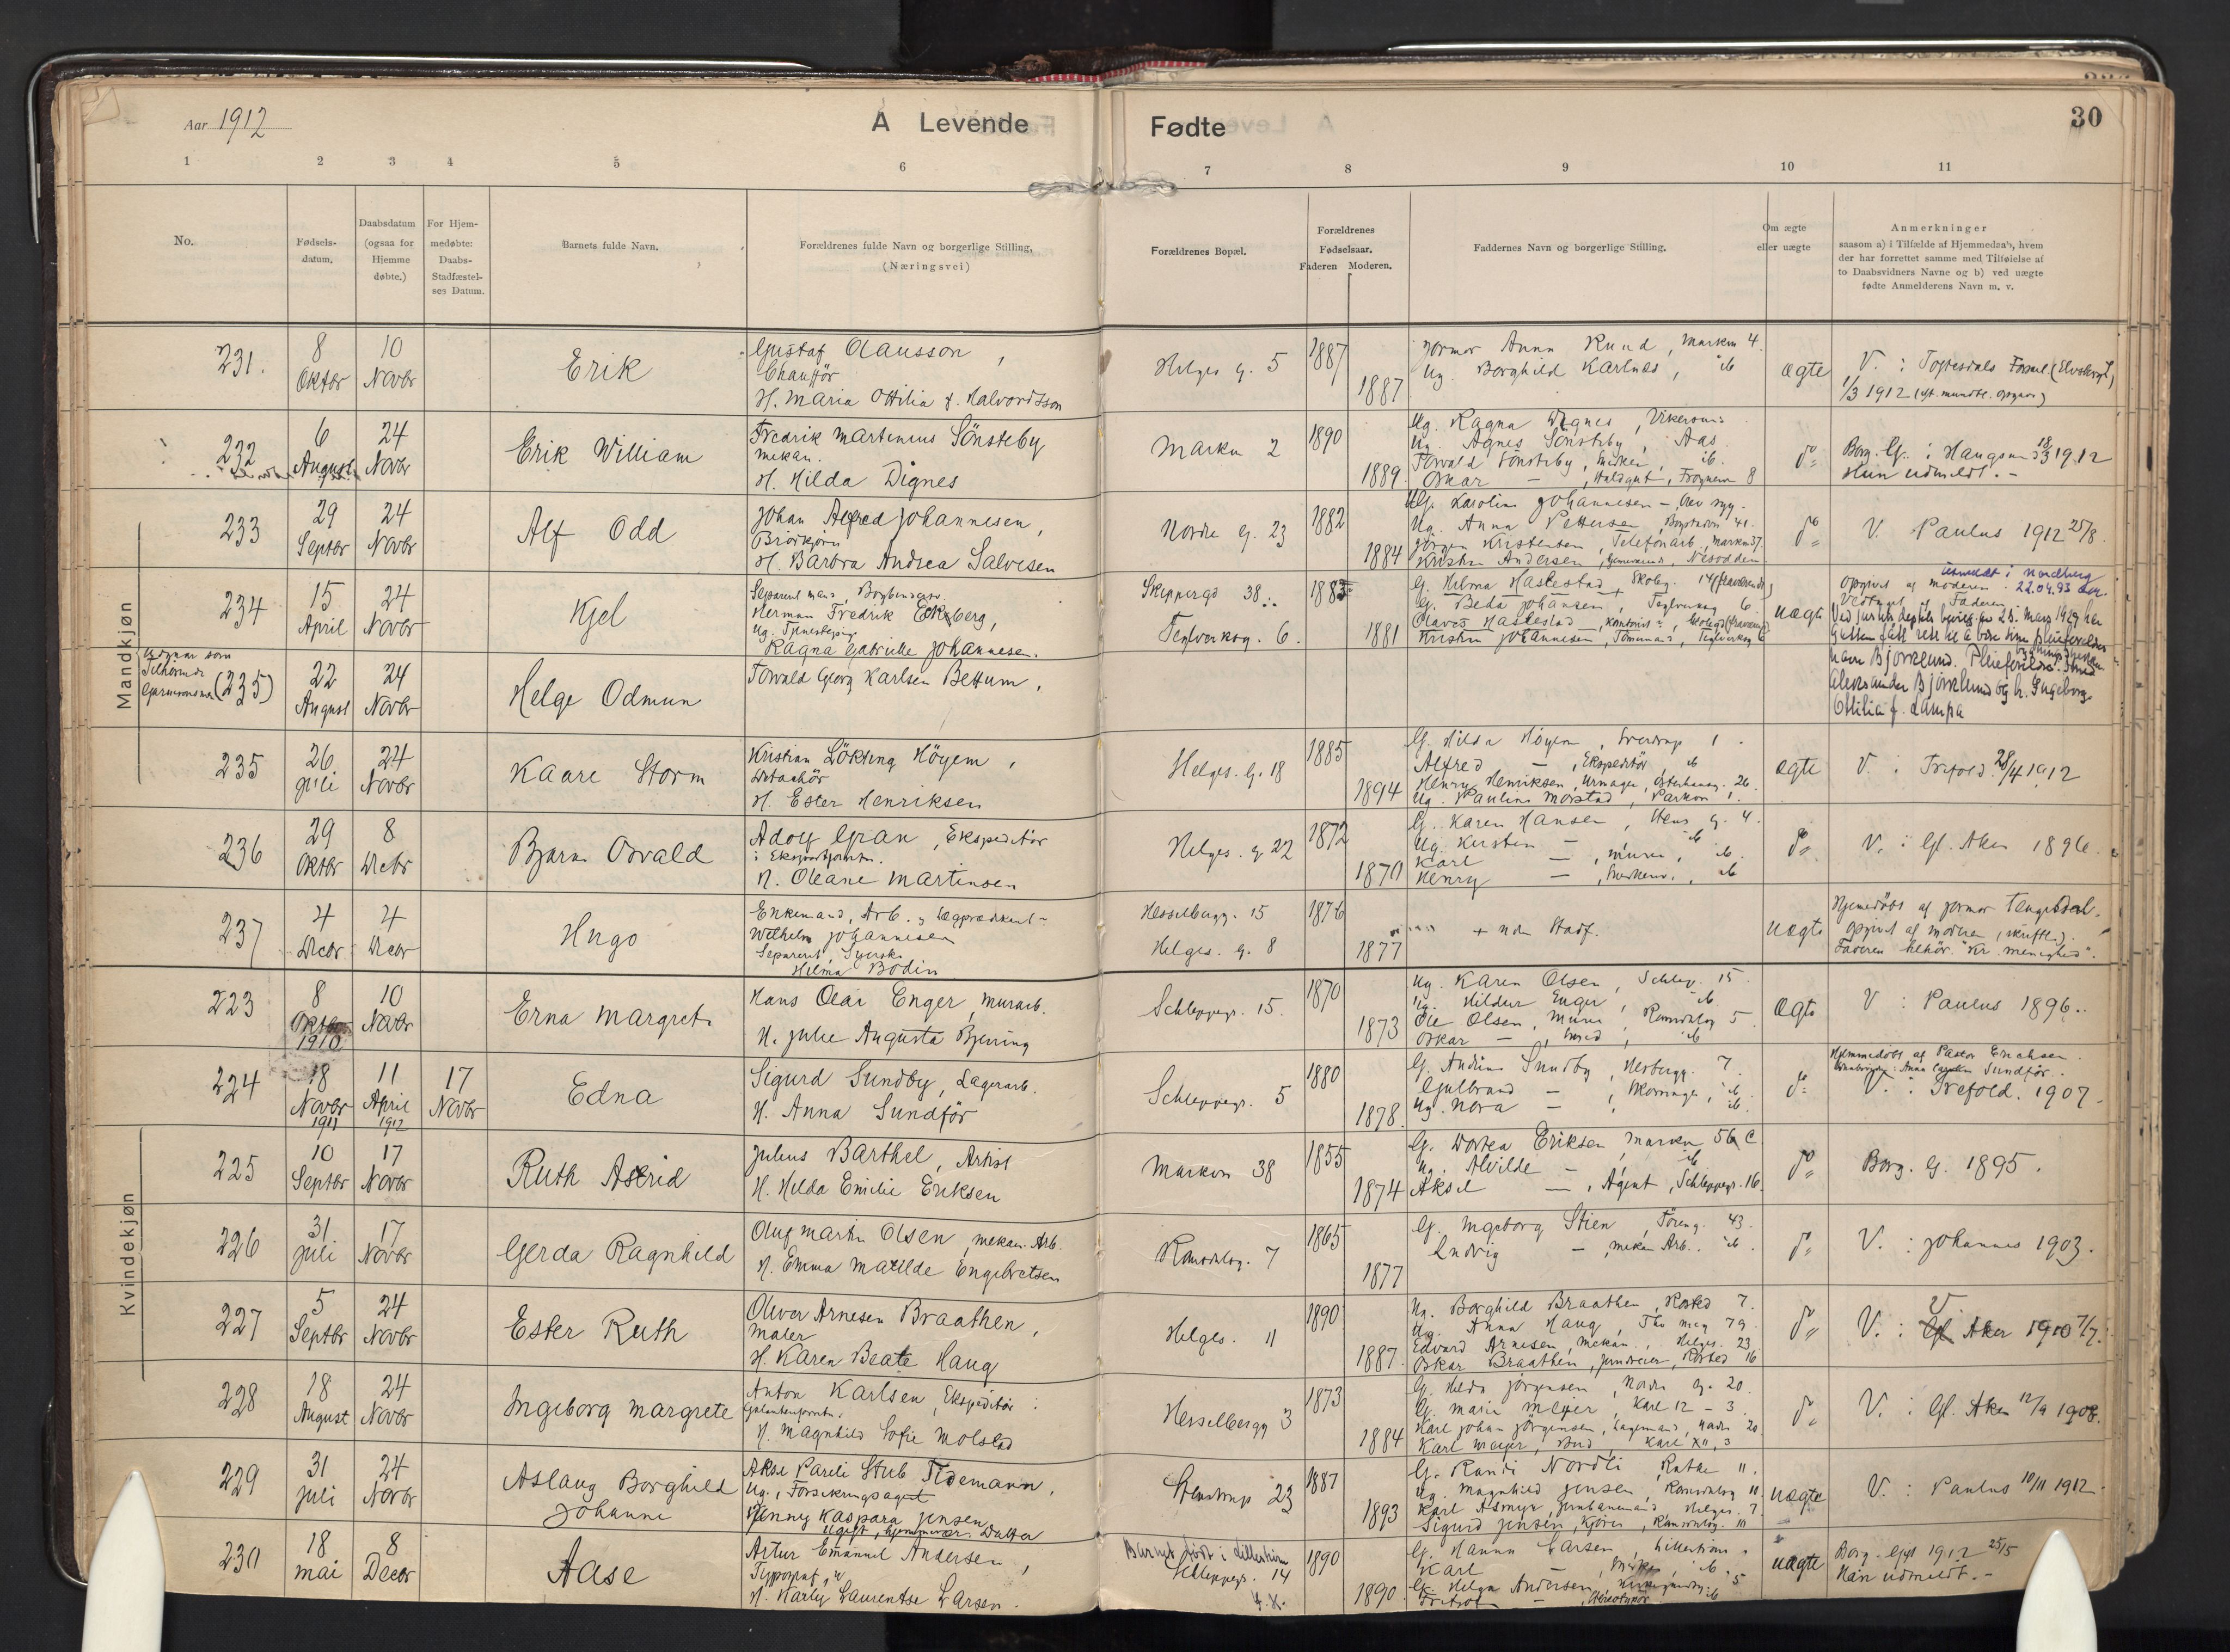 Aar 1912
A Levende Fødte
30
1 2 3 4 5 6 7 8 9 10 11
No.
Fødsels-
datum.
Daabsdatum
(ogsaa for
Hjemme
døbte.)
For Hjem-
medøbte:
Daabs-
Stadfæstel-
ses Datum.
Barnets fulde Navn.
Forældrenes fulde Navn og borgerlige Stilling.
(Næringsvei)
Forældrenes Bopæl.
Forældrenes
Fødselsaar.
Faderen Moderen.
Faddernes Navn og borgerlige Stilling.
Om ægte
eller uægte
Anmerkninger
saasom a) i Tilfælde af Hjemmedaab, hvem
der har forrettet samme med Tilføielse af
to Daabsvidners Navne og b) ved uægte
fødte Anmelderens Navn m. v.
Mandkjøn
231.
8
Oktbr
10
Novbr
Erik
Gustaf Olausson,
Chauffør
H. Maria Ottilia f. Halvordsson
Helges g. 5
1887
1887
Farmor Anna Rund, Markvn 4.
Ug. Borghild Karlnes, ib
ægte
1/3 1912 (eft. mundtl. opgave)
232
6
August
24
Novbr
Erik William
Fredrik Martenius Sönsteby
Mekan.
H. Hilda Dignes
Markv 2
1890
1889
Ug. Ragna Dignes, Vikersund
Ug. Agnes Sönsteby, Aas
Torvald Sönsteby, ib.
Oskar —
do
Borg. Gj. i Haugsund 18/3 1912
Hun udmeldt.-
233
29
Septbr
24
Novbr
Alf Odd
Johan Alfred Johannesen,
Brödkjörer
H. Barbra Andrea Salvesen
Nordre g. 23
1882
1884
Gf. Karoline Johannesen
Ug. Anna Pettersen, 41.
Jörgen Kristensen, Telefonarb, Markvn 37.
Kristian Andersen, Nesodden
do
V. Paulus 1912 25/8.
234
15
April
24
Novbr
Kjel
Separert mand, Bogbindersv.
Herman Fredrik Ekberg,
Ug. Tjenestepige
Ragna Gabrielle Johannesen.
Skeppergd 38.
Teglverksg. 6.
1883
1881
G. Helma Hastestad, Skoleg. 14
G. Beda Johansen, Teglverksg 6.
Olaves Hastestad, Kontorist
Kristian Johannesen, Tömmermd, Teglverksg 6
uægte
utmeldt i Nordberg
22.04.93
Opgivet af moderen
Vedtaget af Faderen
Ved just. deptets bevilg. av 25. mars 1929 har
gutten fått rett til å bære sine pleieforeldres
navn Bjørklund. Pleieforeldre:
Aleksander Bjørklund og h. Ingeborg
Ottilia f. Lampa
(235)
22
August
24
Novbr
Helge Odmun
Torvald Georg Karlsen Bettum,
235
26
juli
24
Novbr
Kaare Storm
Kristian Lökting Höyem,
H. Ester Henriksen
Helges. G. 18
1885
1894
G. Hilda Höyem, Sverdrups 1.
Alfred — , Ekspeditör, ib
Henry Henriksen, Urmager, Osterhausg. 26
Ug. Pauline Morstad, Parkvn 1.
ægte
V. i Trefold. 28/4 1912
236
29
Oktbr
8
Decbr
Bjarne Osvald
Adolf Gran, Ekspeditör
i Eksportforretn.
H. Oleane Martinsen
Helges. g 22
1872
1870
G. Karen Hansen, Stens g. 4.
Ug. Kirsten — ib
Karl — , Murer, ib.
Henry — , ib
do
V. i Gl. Aker 1896.
237
4
Decbr
4
Decbr
Hugo
Enkemand, Arb. og Lægprædikant
Wilhelm Johannesen
Separert, Svensk
Hilma Bodin
Hesselbergg. 15
Helges. g. 8
1876
1877
+ uden Stadf.
uægte
Hjemedöbt af jormor Tengesdal.
Opgivet af moderen (skriftl.).
Faderen tilhör. "Kr. Menighed".
Kvindekjøn
223
8
Oktbr
1910
10
Novbr
Erna Margrete
Hans Olai Enger, Murarb.
H. Julie Augusta Bjerring
Schleppegr. 15.
1870
1873
Ug. Karen Olsen, Schlep. 15.
Ug. Hildur Enger, ib
Ole Olsen, Murer, Romsdalsg 5.
Oskar — , Smed, ib
ægte
V : Paulus 1896.
224
18
Novbr
1911
11
April
1912
17
Novbr
Edna
Sigurd Sundby, Lagerarb.
H. Anna Sundför
Schleppegr. 5
1880
1878.
G. Andine Sundby, Herbergg. 7.
Gulbrand — , ib.
Ug. Nora — , ib.
do
Hjemmedöbt af Pastor Erichsen.
V. : Trefold. 1907.
225
10
Septbr
17
Novbr
Ruth Astrid
Julius Barthel, Artist
H. Hilda Emilie Eriksen
Markvn 38
1855
1874
G. Dortea Eriksen, Markvn 56 C.
Ug. Alvilde — ib
Aksel — , Agent, Schleppegr. 16.
do
Borg. G. 1895.
226
31
juli
17
Novbr
Gerda Ragnhild
Oluf Martin Olsen, Mekan. Arb.
H. Emma Matilde Engebretsen
Romsdalsg. 7
1865
1877
G. Ingeborg Stien, Töieng. 43.
Ludvig — , mekan Arb.. ib.
do
V. : Johannes 1903.
227
5
Septbr
24
Novbr
Ester Ruth
Oliver Arnesen Braathen,
Maler
H. Karen Beate Haug
Helges. 11
1890
1887.
Ug. Borghild Braathen, Rosted 7.
Ug. Anna Haug, Tho Mey 79.
Edvard Arnesen, Mekan., Helges. 23.
Oskar Braathen, Rosted 16
do
V. : Gl. Aker 1910 7/7.
228
18
August
24
Novbr
Ingeborg Margrete
Anton Karlsen, Ekspeditör
Galanteriforretn.
H. Magnhild Sofie Molstad
Hesselbergg 3
1873
1884
G. Hilda Jörgensen, Nordre g. 20.
G. Marie Meyer, Karl 12 - 3.
Karl Johan Jörgensen, Lagermand, Nordre 20
Karl Meyer, Bud, Karl XII, 3
do
V. : Gl. Aker 12/9 1908.
229
31
juli
24
Novbr
Aslaug Borghild
Johanne
Aksel Pareli Stub Tidemann,
Ug., Forsikringsagent
Henny Kaspara Jensen
Ugift, hjemmevær. Datter
Stenstrup 23
1887
1893
G. Randi Nordli, Rathe 11.
Ug. Magnhild Jensen, Romsdalsg 11
Karl Asmyr, Jernbanemand, Helges. 7
Sigurd Jensen, Kjörer, Romsdalsg. 11
uægte
V. : Paulus 10/11 1912.
230
18
mai
8
Decbr
Aase
Artur Emanuel Andersen,
Typograf
H. Karly Laurentse Larsen.
Barnet född i Lilleström
Schleppegr. 14
1890
1890.
G. Hanna Larsen, Lilleström.
Karl — , ib.
G. Helga Andersen, 5
— , Stereotypör. ib
uægte
Borg. Gift 1912 25/5
Han udmeldt.-